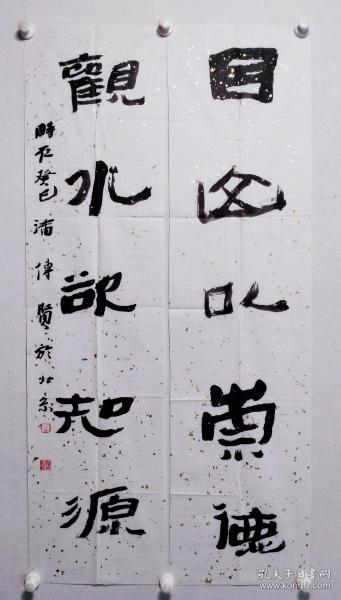 因山以崇德
觀水欲知源
時在癸巳潘傳賢於北京
孔夫子旧书网